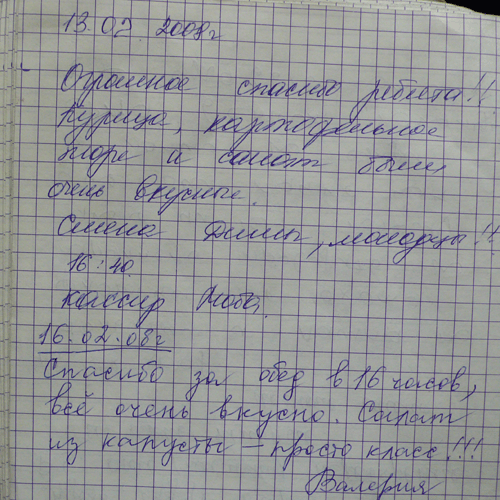 13.02.2008г
Огромное спасибо ребята!!
Курица, картофельное
пюре и салат были
очень вкусные.
Смена Димы, молодцы!!
16:40
кассир
16.02.08г
Спасибо за обед в 16 часов,
всё очень вкусно. Салат
из капусты — просто класс!!!
Валерия